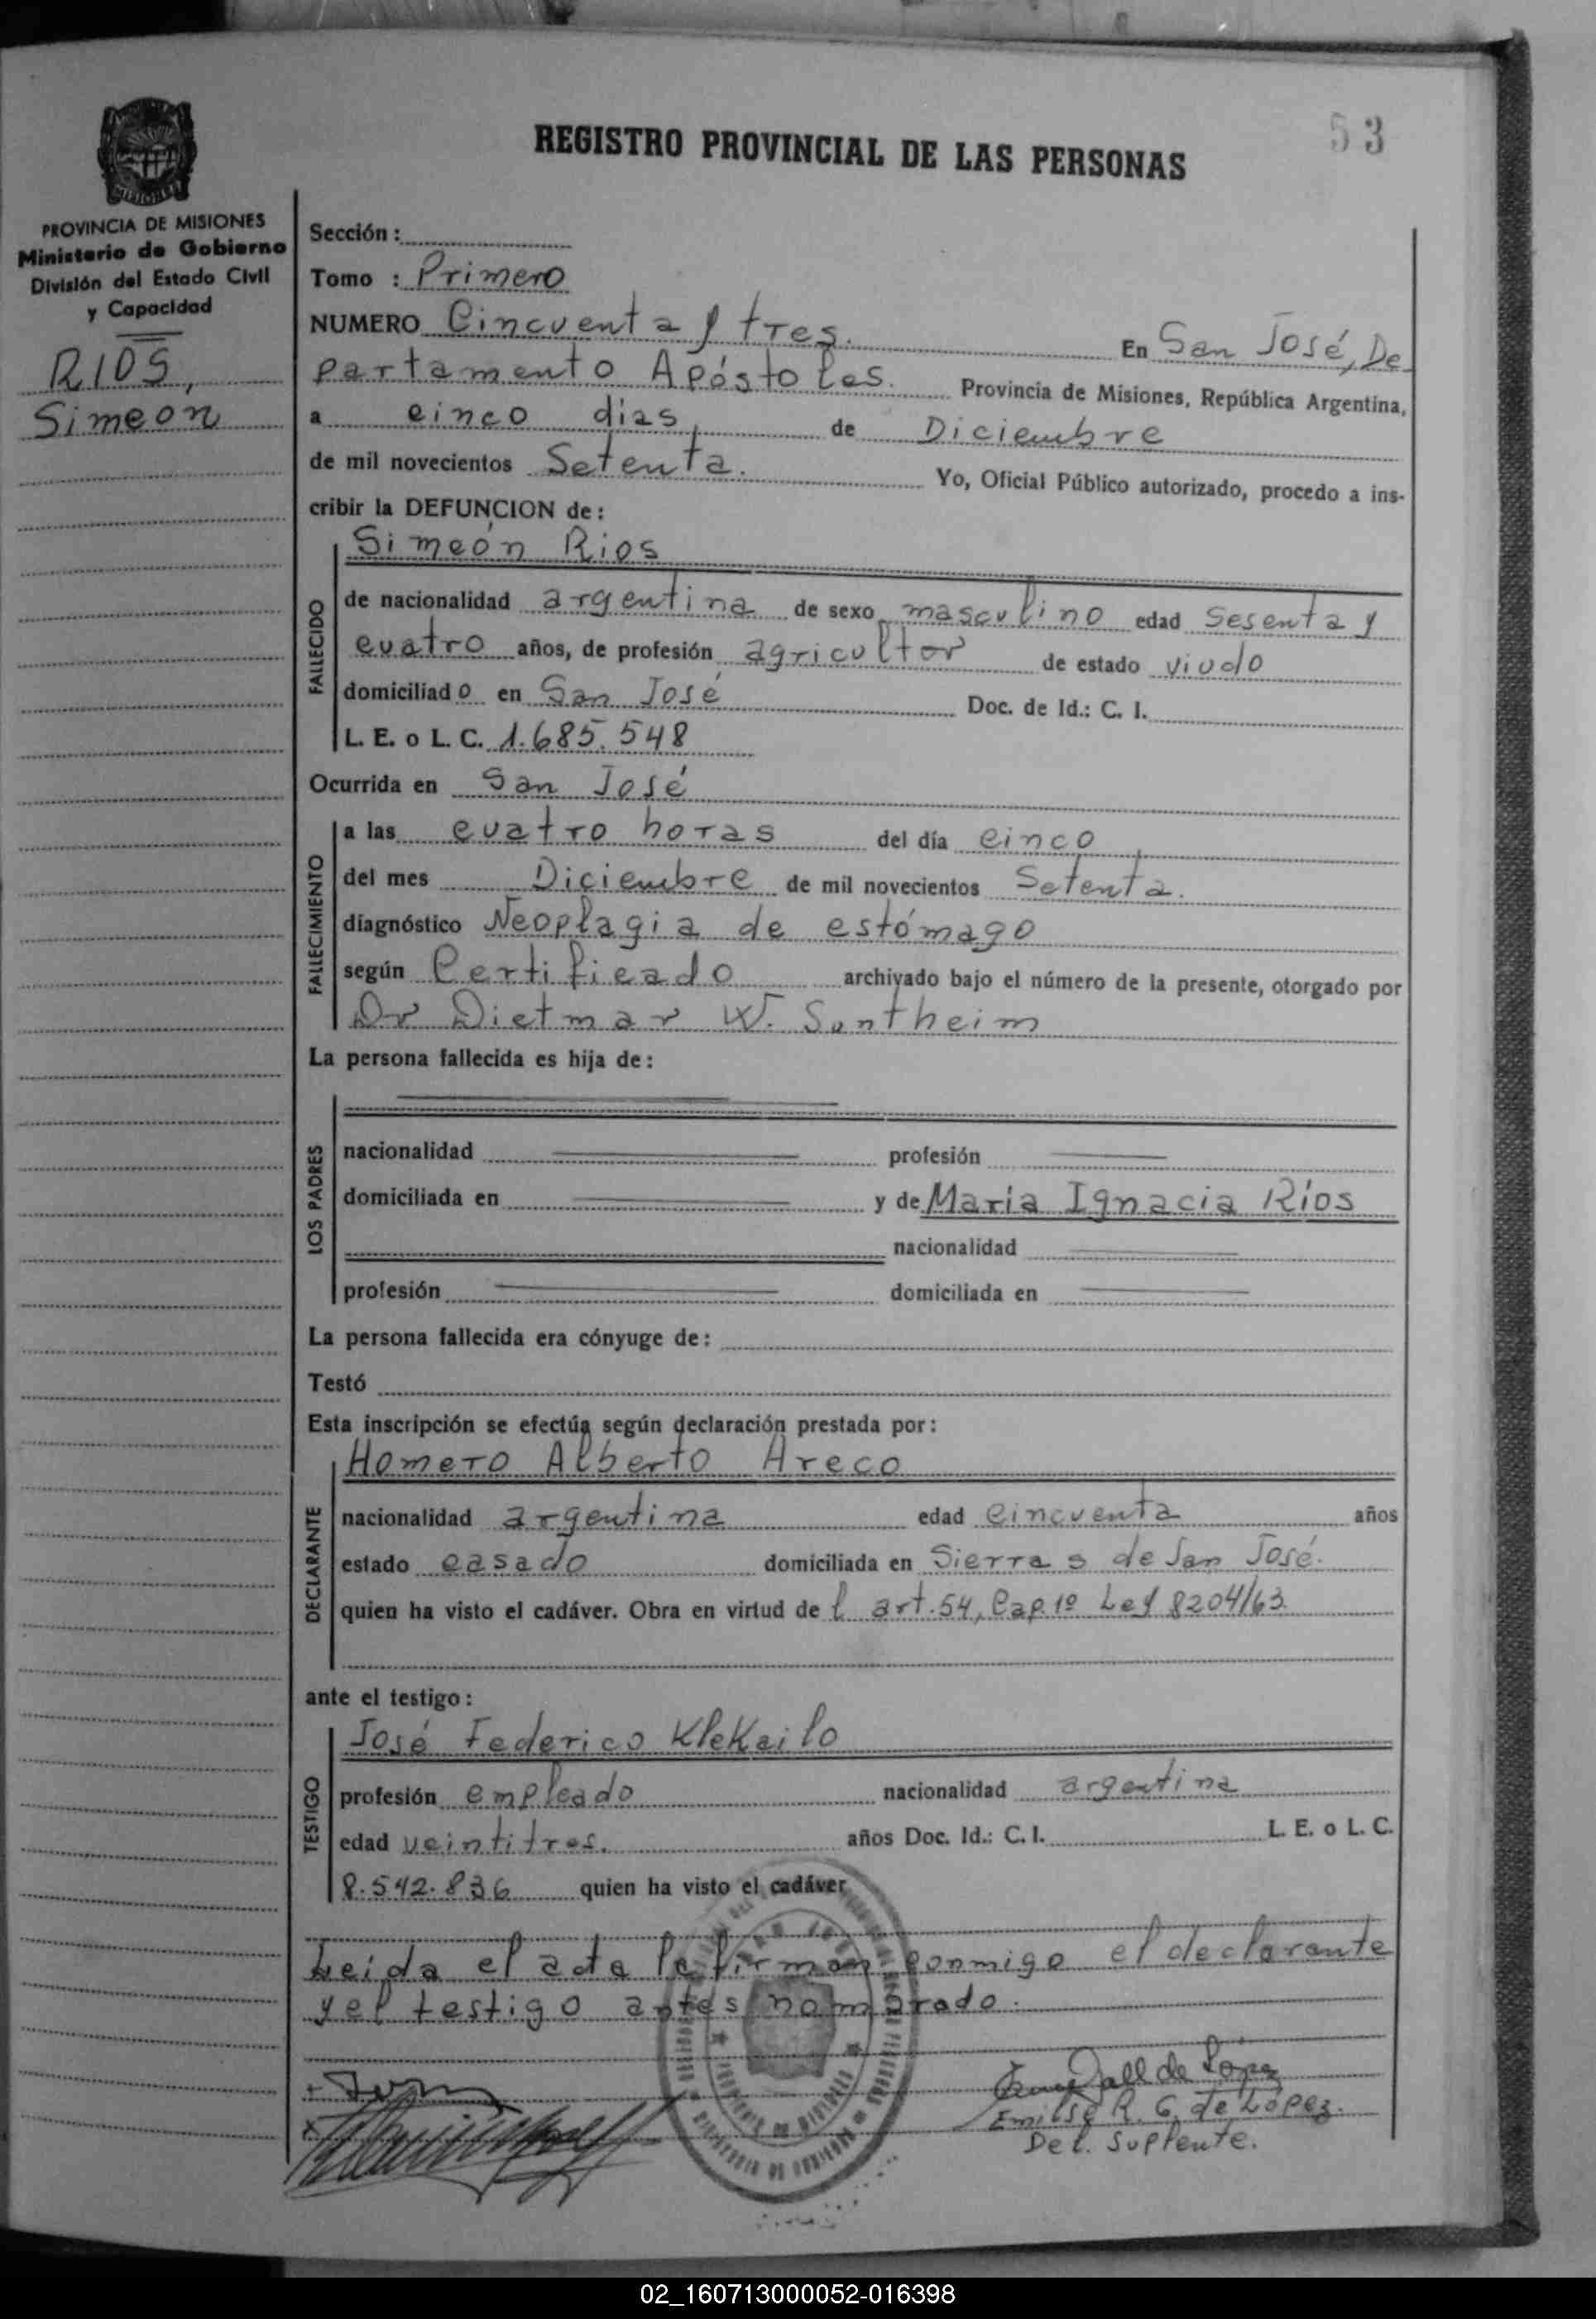 53
REGISTRO PROVINCIAL DE LAS PERSONAS
MISIONES
PROVINCIA DE MISIONES
Ministerio de Gobierno
División del Estado Civil
y Capacidad
RIOS,
Simeon
Sección :
Tomo : Primero
NUMERO Cincuenta y tres. En San José, De
partamento Apóstoles. Provincia de Misiones, República Argentina,
a cinco dias, de Diciembre
de mil novecientos Setenta. Yo, Oficial Público autorizado, procedo a ins-
cribir la DEFUNCION de :
FALLECIDO
Simeón Rios
de nacionalidad argentina de sexo masculino edad Sesenta y
cuatro años, de profesión agricultor de estado viudo
domiciliado en San José Doc. de Id.: C. I.
L. E. o L. C. 1.685.548
Ocurrida en San José
FALLECIMIENTO
a las cuatro horas del día cinco,
del mes Diciembre de mil novecientos Setenta.
diagnóstico Neoplagia de estómago
según Certificado archivado bajo el número de la presente, otorgado por
Dr Dietmar W. Sontheim
La persona fallecida es hija de :
LOS PADRES
nacionalidad profesión
domiciliada en y de María Ignacia Ríos
nacionalidad
profesión domiciliada en
La persona fallecida era cónyuge de :
Testó
Esta inscripción se efectúa según declaración prestada por :
DECLARANTE
Homero Alberto Areco
nacionalidad argentina edad cincuenta años
estado casado domiciliada en Sierras de San José.
quien ha visto el cadáver. Obra en virtud de l art. 54, Cap. 1º Ley 8204/63.
ante el testigo :
TESTIGO
José Federico Klekailo
profesión empleado nacionalidad argentina
edad veintitres. años Doc. Id.: C. I. L. E. o L. C.
8.542.836 quien ha visto el cadáver
Leida el acta la firman conmigo el declarante
y el testigo antes nombrado.
Gall de López
Emilse R. G. de López.
Del. Suplente.
02_160713000052-016398